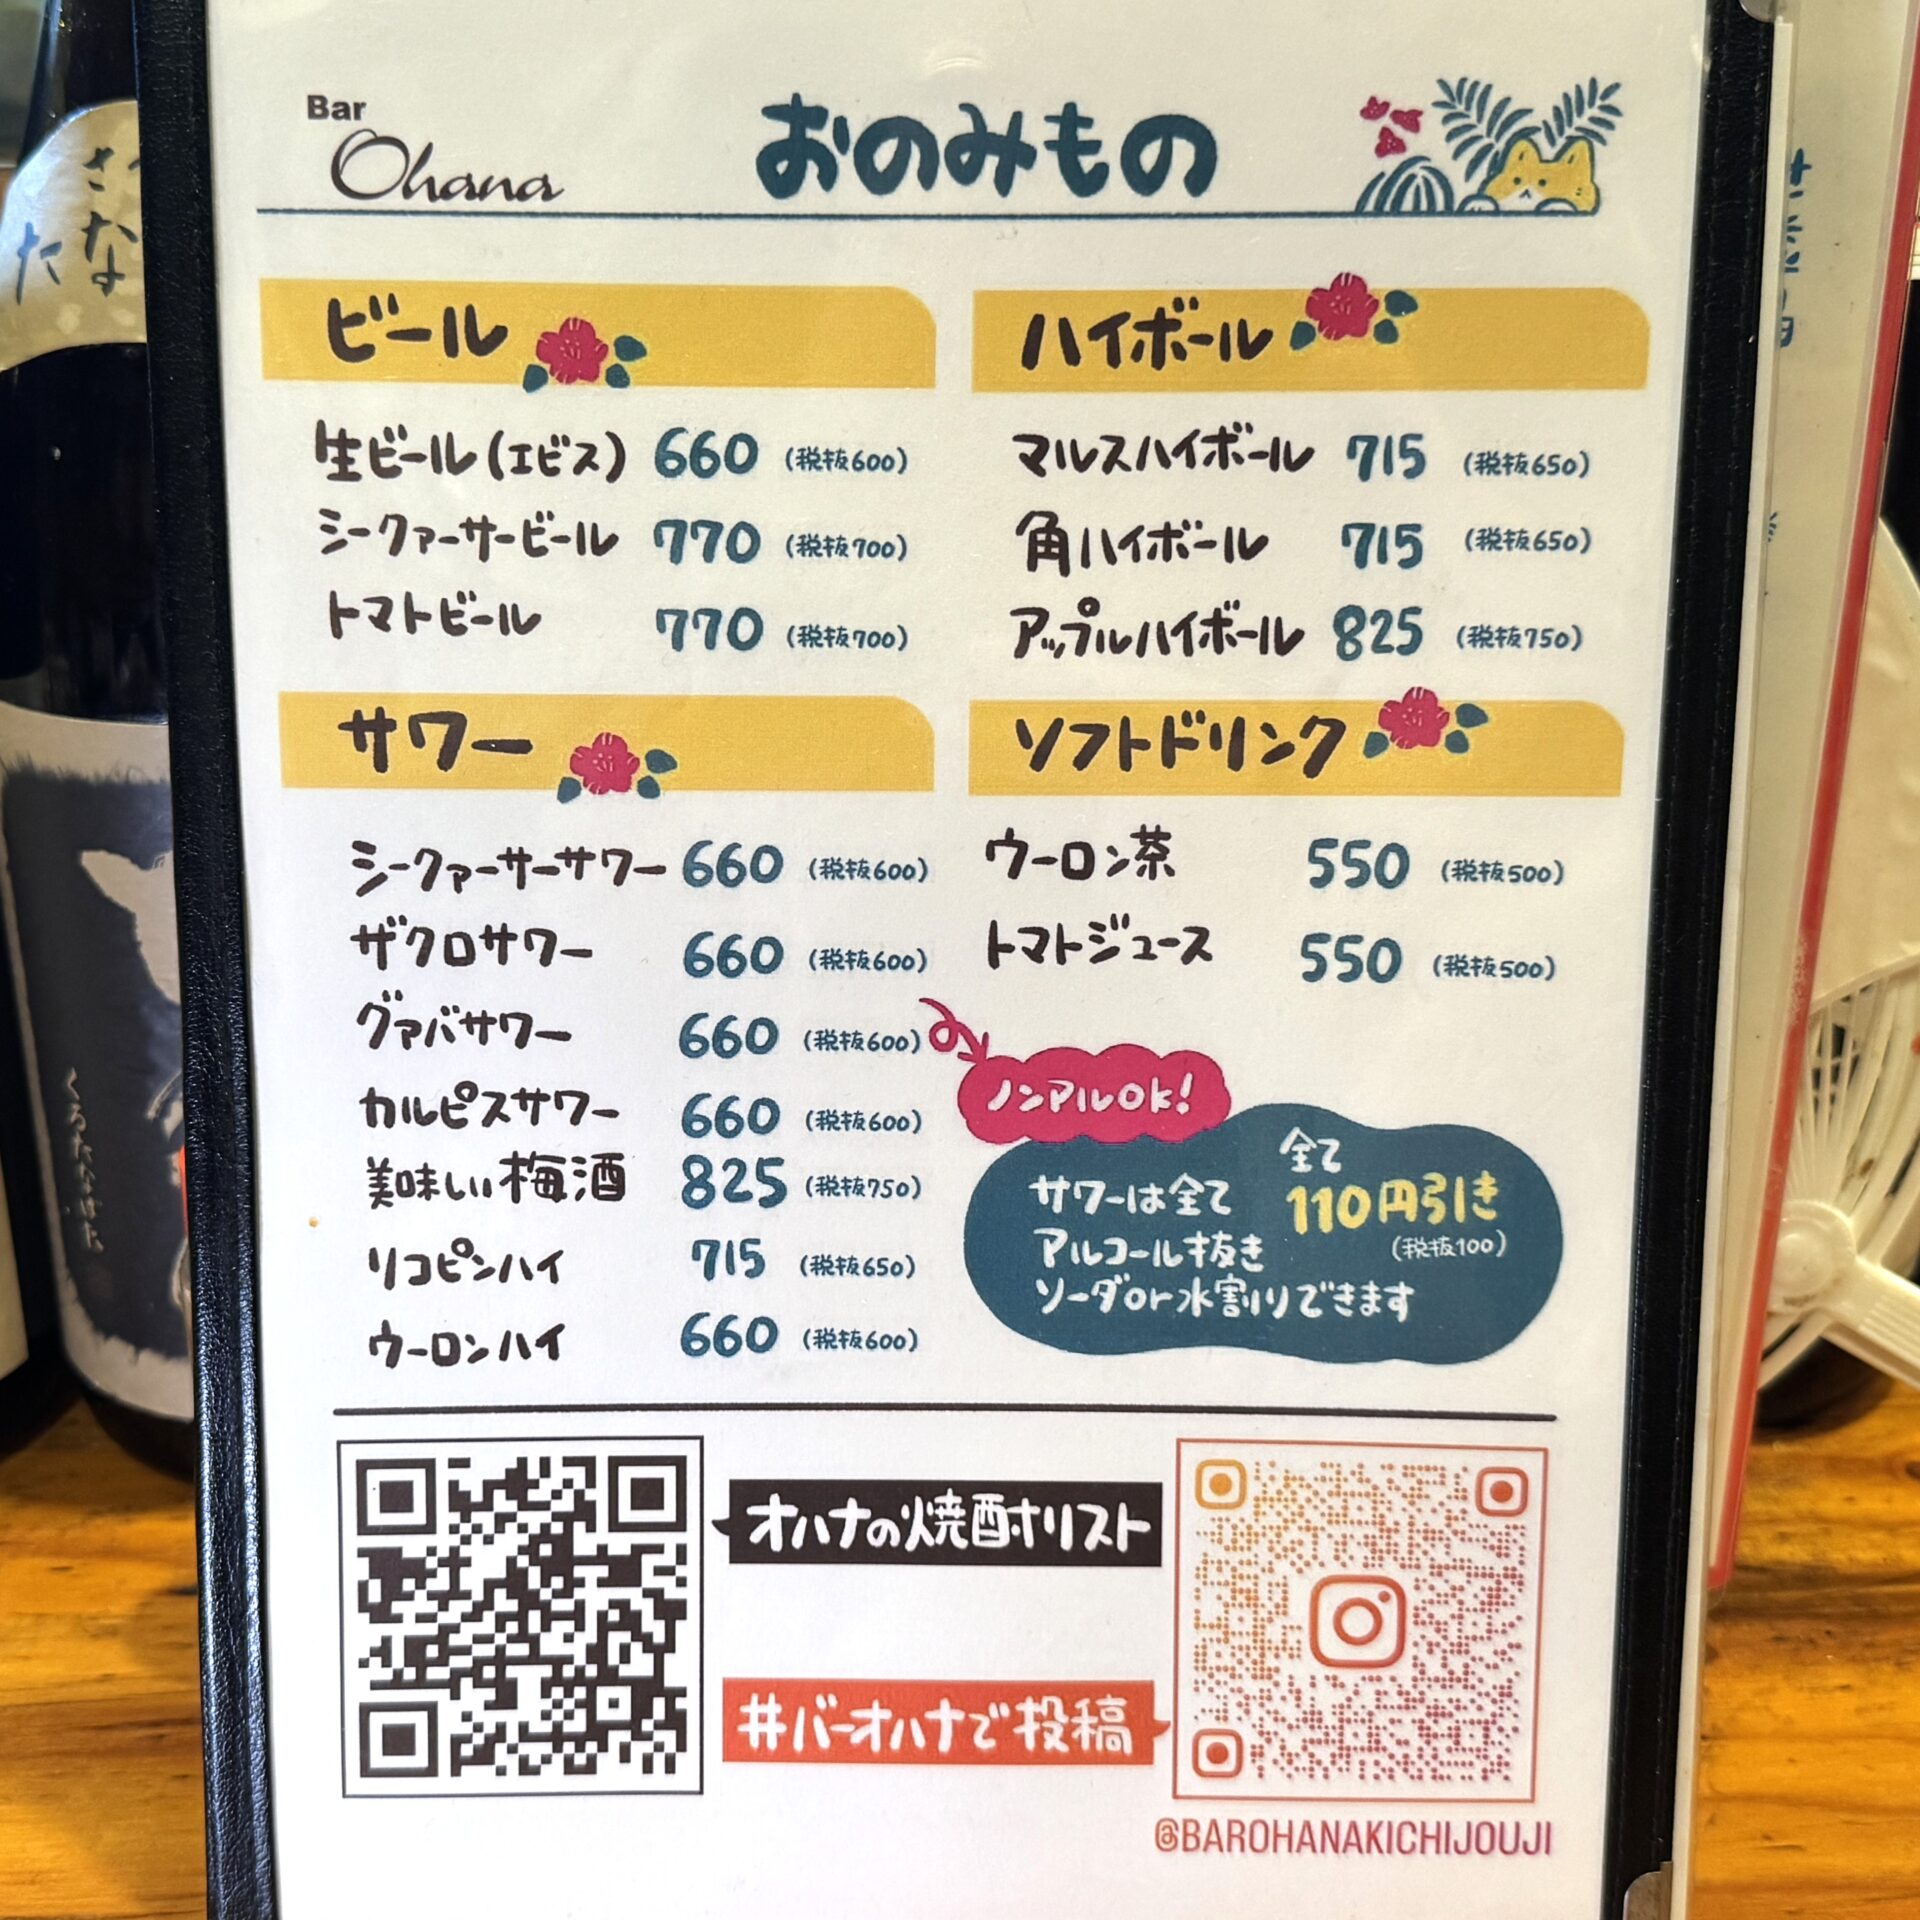 Bar
Ohana
おのみもの
ビール
生ビール(エビス) 660 (税抜600)
シークァーサービール 770 (税抜700)
トマトビール 770 (税抜700)
ハイボール
マルスハイボール 715 (税抜650)
角ハイボール 715 (税抜650)
アップルハイボール 825 (税抜750)
サワー
シークァーサーサワー 660 (税抜600)
ザクロサワー 660 (税抜600)
グァバサワー 660 (税抜600)
カルピスサワー 660 (税抜600)
美味しい梅酒 825 (税抜750)
リコピンハイ 715 (税抜650)
ウーロンハイ 660 (税抜600)
ソフトドリンク
ウーロン茶 550 (税抜500)
トマトジュース 550 (税抜500)
ノンアルOK!
サワーは全て
アルコール抜き
ソーダor水割りできます
全て
110円引き
(税抜100)
オハナの焼酎リスト
#バーオハナで投稿
@BAROHANAKICHIJOUJI
くろたなばた